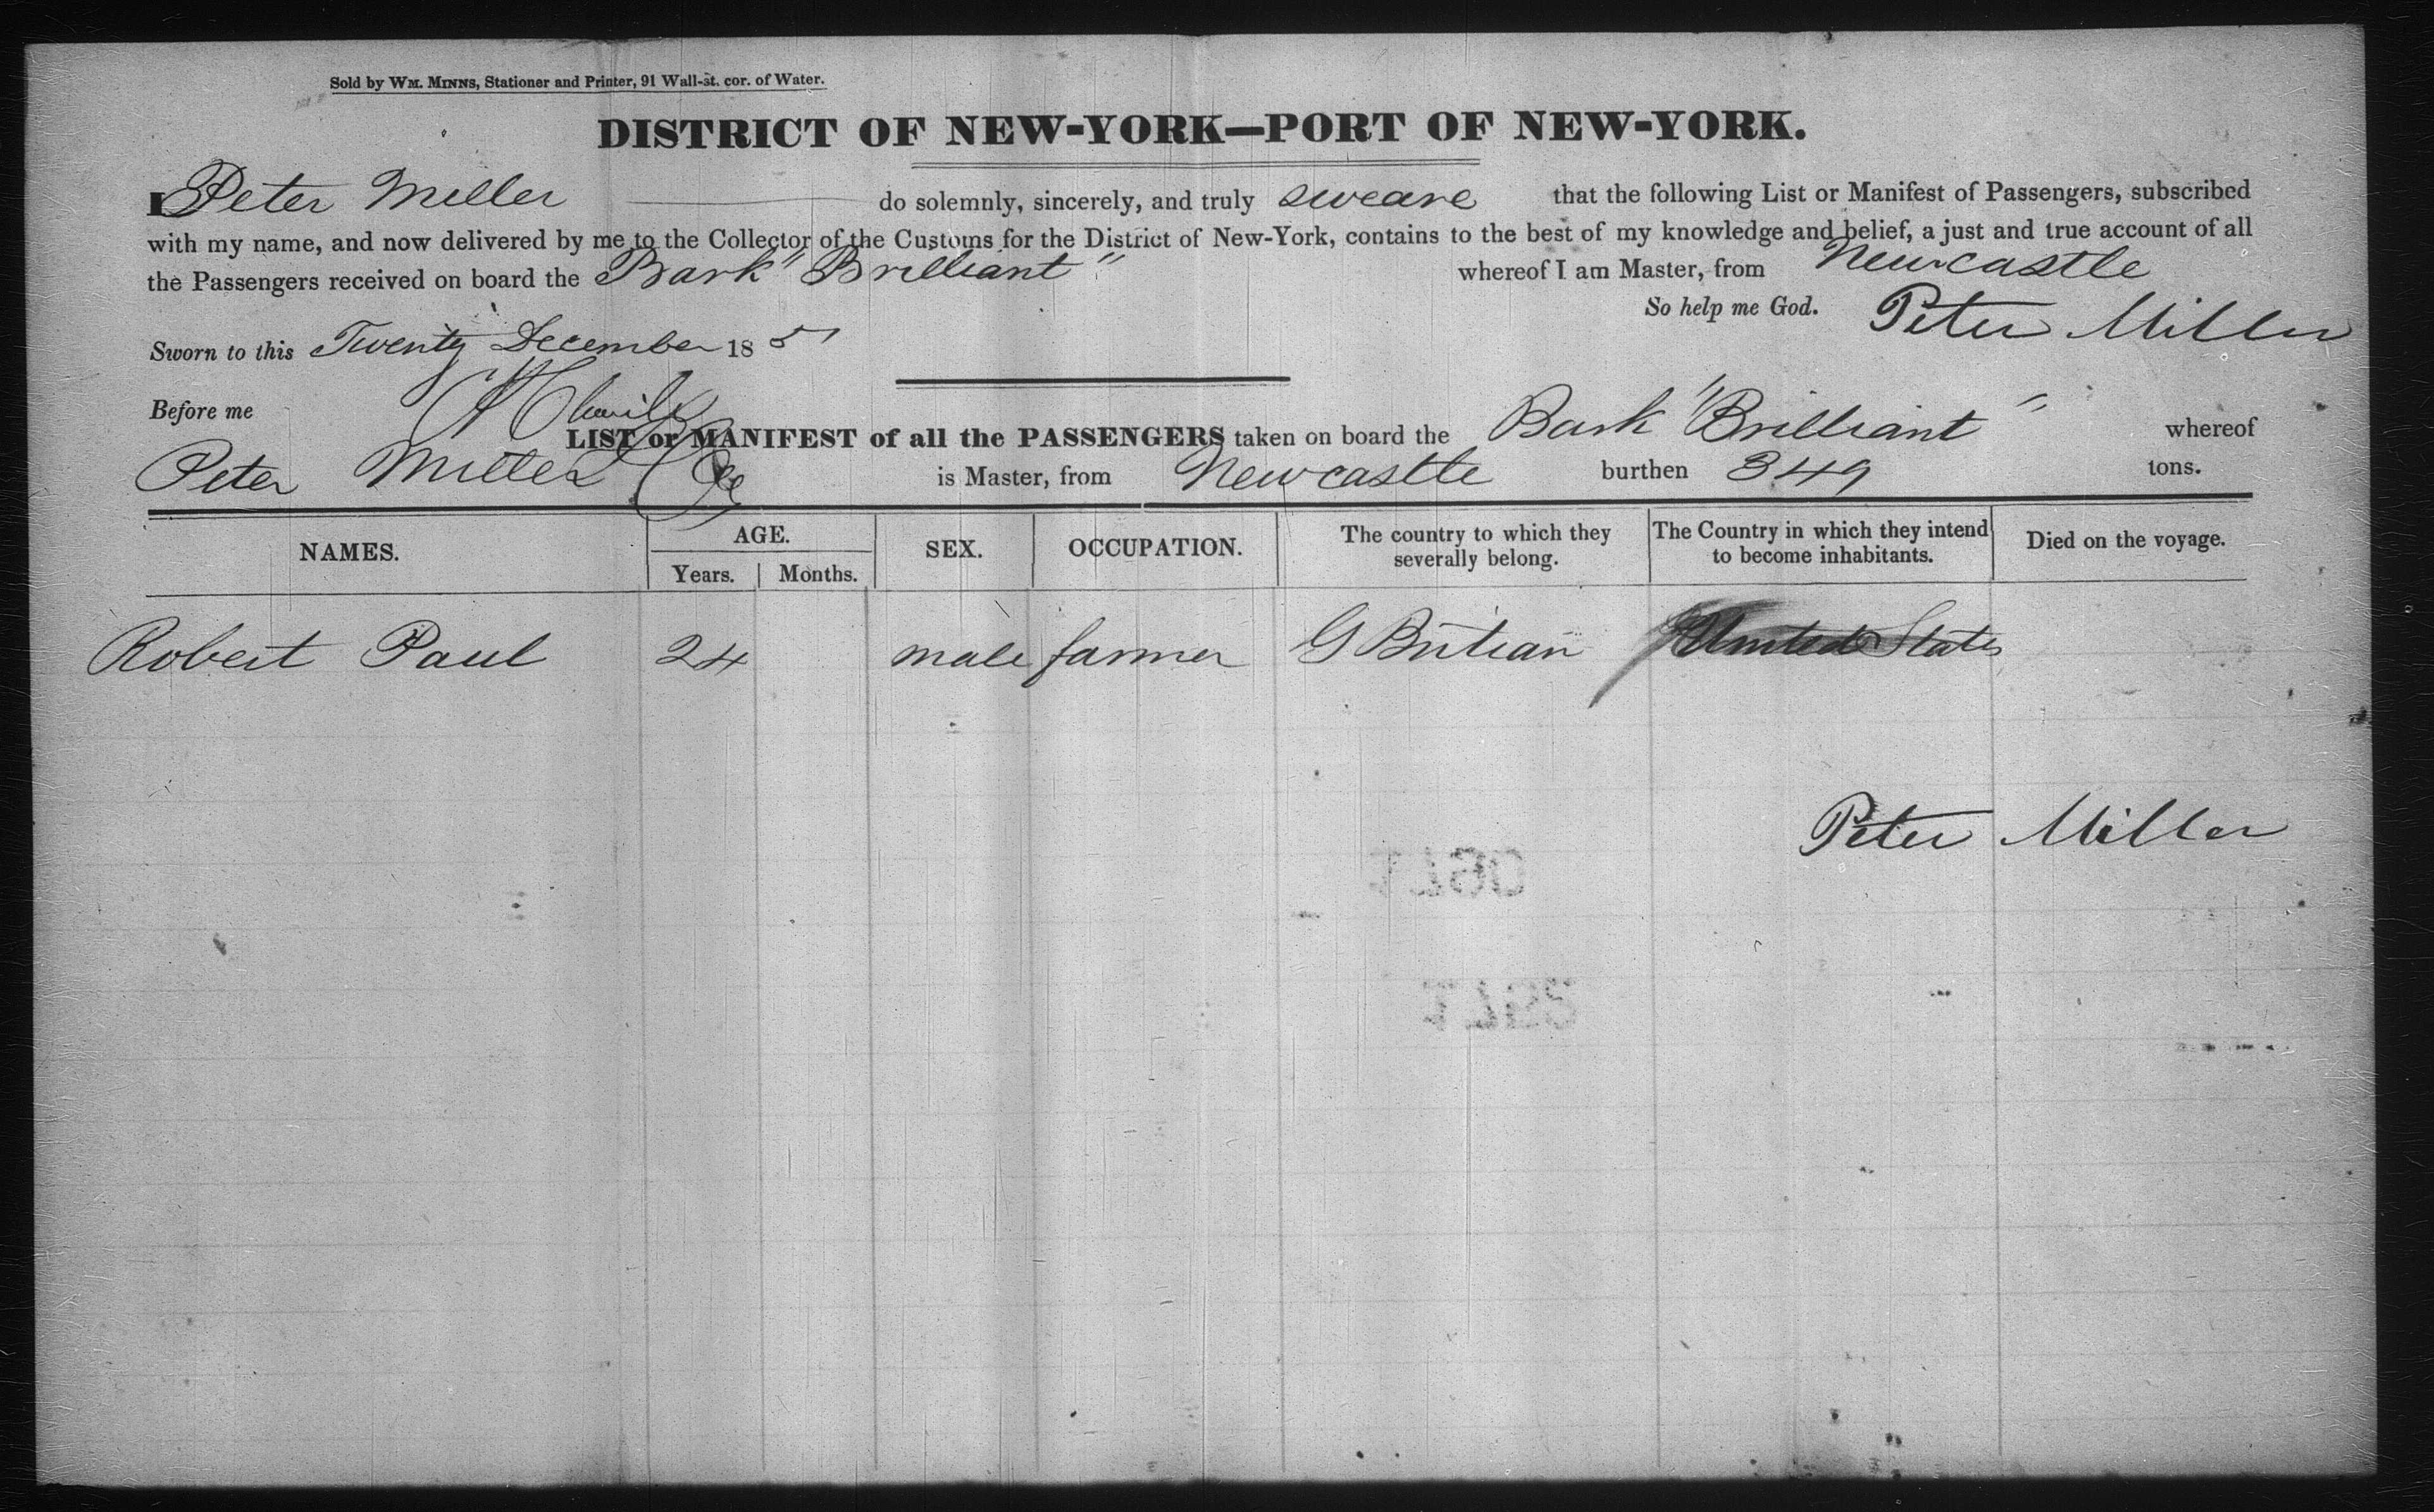 Sold by WM. MINNS, Stationer and Printer, 91 Wall-st. cor. of Water.
DISTRICT OF NEW-YORK—PORT OF NEW-YORK.
I Peter Miller do solemnly, sincerely, and truly sweare that the following List or Manifest of Passengers, subscribed
with my name, and now delivered by me to the Collector of the Customs for the District of New-York, contains to the best of my knowledge and belief, a just and true account of all
the Passengers received on board the Bark "Brilliant" whereof I am Master, from Newcastle
So help me God. Peter Miller
Sworn to this Twenty December 1851
Before me
LIST or MANIFEST of all the PASSENGERS taken on board the Bark "Brilliant" whereof
Peter Miller is Master, from Newcastle burthen 349 tons.
NAMES. AGE. Years. Months. SEX. OCCUPATION. The country to which they severally belong. The Country in which they intend to become inhabitants. Died on the voyage.
Robert Paul 24 male farmer G Britian United States
Peter Miller